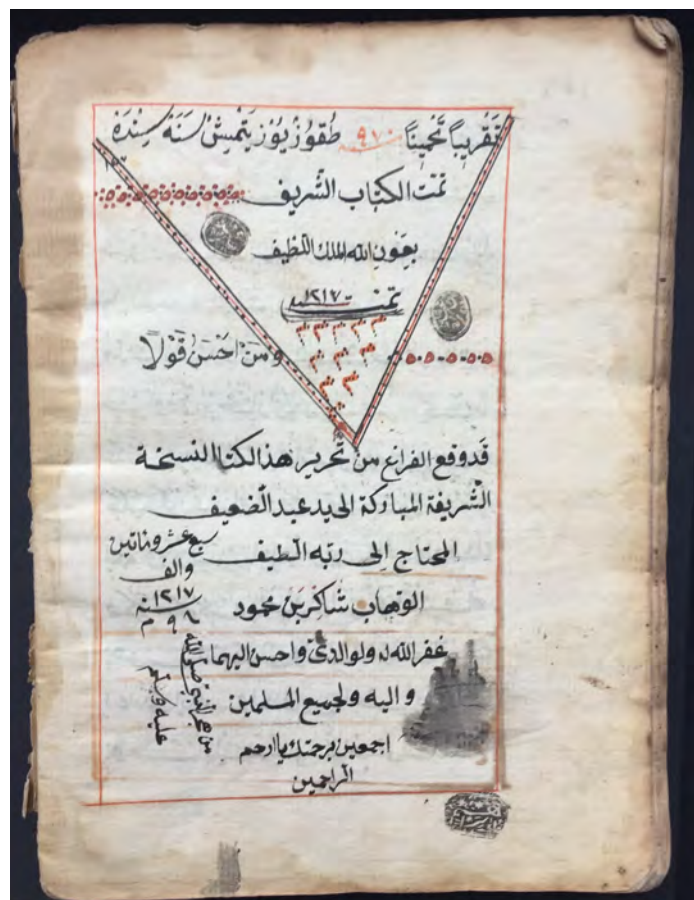 تَقْرِيباً تَخْمِيناً ٩٧٠ طُقُوزْ يُوزْ يَتْمِشْ سَنَهْ سِنْدَهْ
تمّت الكتاب الشّريف
بعون الله الملك اللّطيف
تمت سنه ١٢١٧
ومَنْ اَحْسَنُ قَوْلاً
قَد وقع الفراغ من تحرير هذ الكتا النسخة
الشّريفة المباركة الى يد عبد الضعيف
المحتاج اِلى ربّه الّطيف
سبع عشر وماتين
والف
سنه ١٢١٧
الوهاب شاكر بن محمود
م ٩٨
غفر الله له ولوالدىّ واحسن اليهما
واليه ولجميع المسلمين
من هجر النّبى صلى الله
عليه وسلم
اجمعين برحمتك يا ارحم
الراحمين